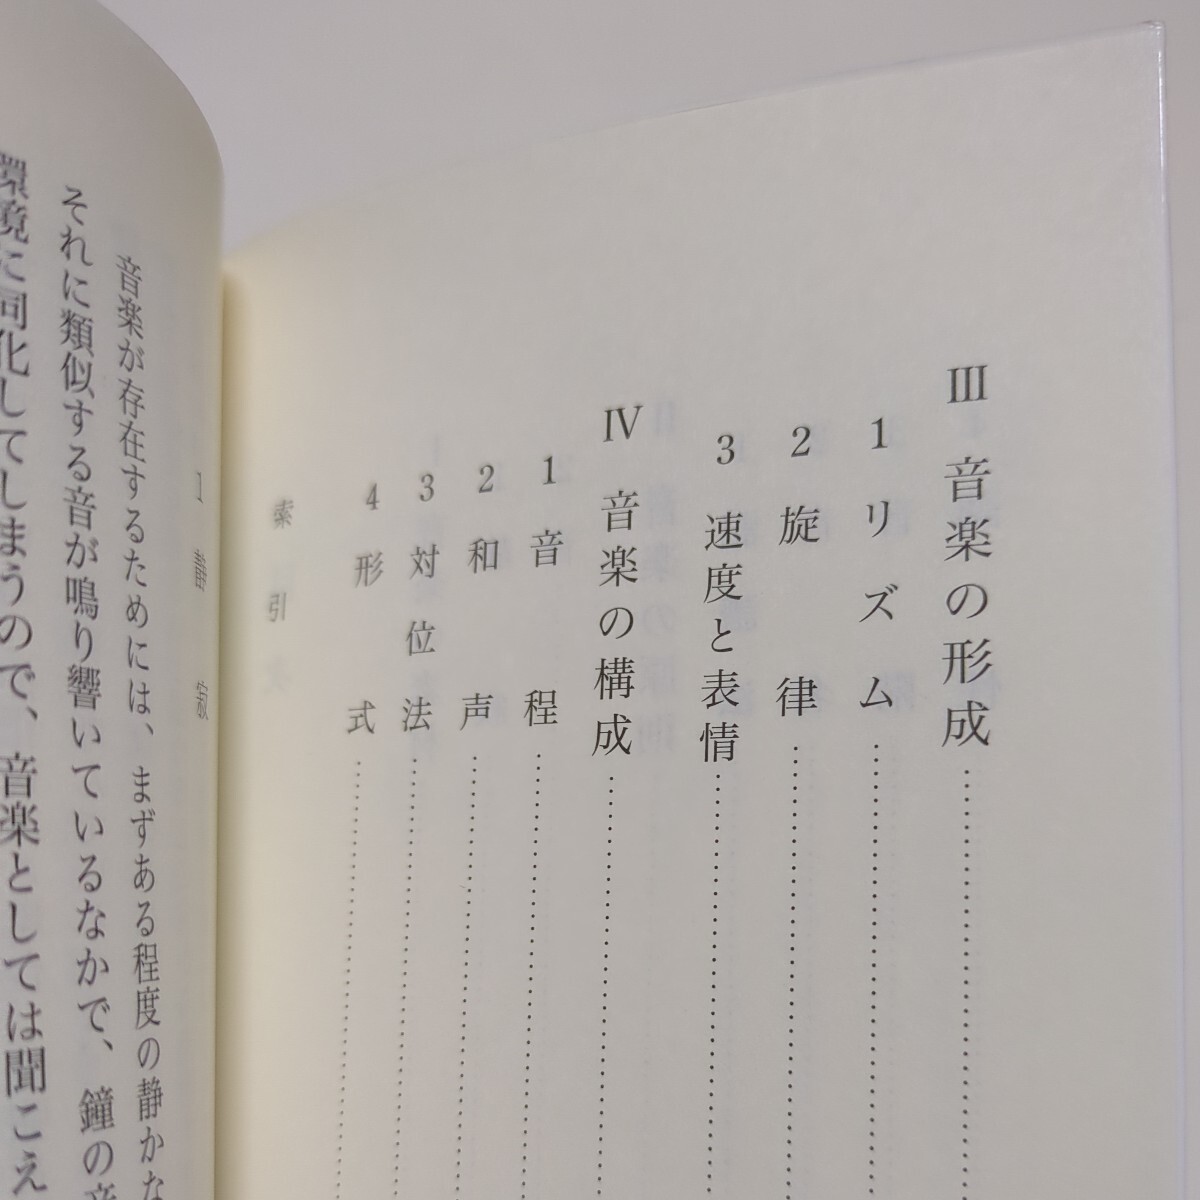 Ⅲ 音楽の形成
1 リズム
2 旋律
3 速度と表情
Ⅳ 音楽の構成
1 音程
2 和声
3 対位法
4 形式
索引
1 静寂
音楽が存在するためには、まずある程度の静かな
それに類似する音が鳴り響いているなかで、鐘の音
環境に同化してしまうので、音楽としては聞こえ